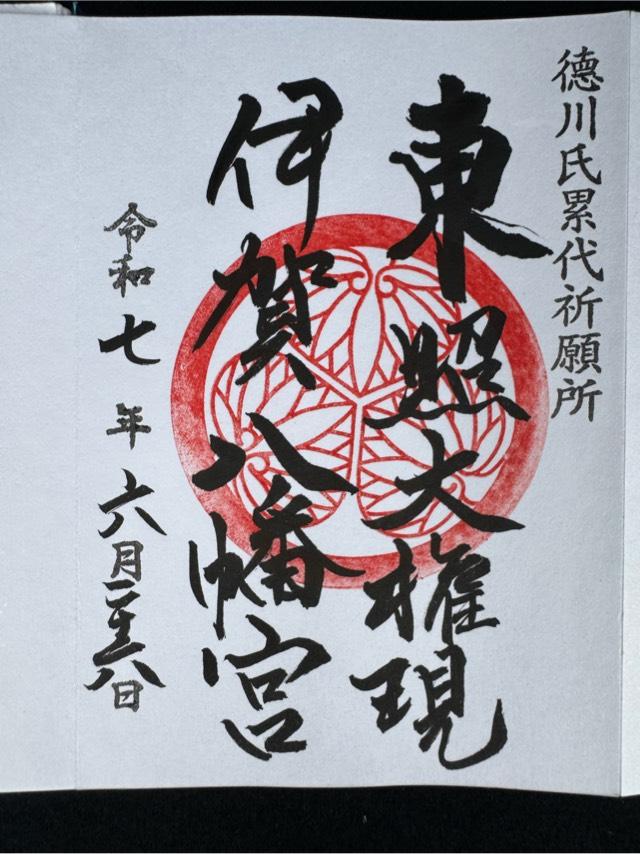 徳川氏累代祈願所
東照大権現
伊賀八幡宮
令和七年六月二十八日